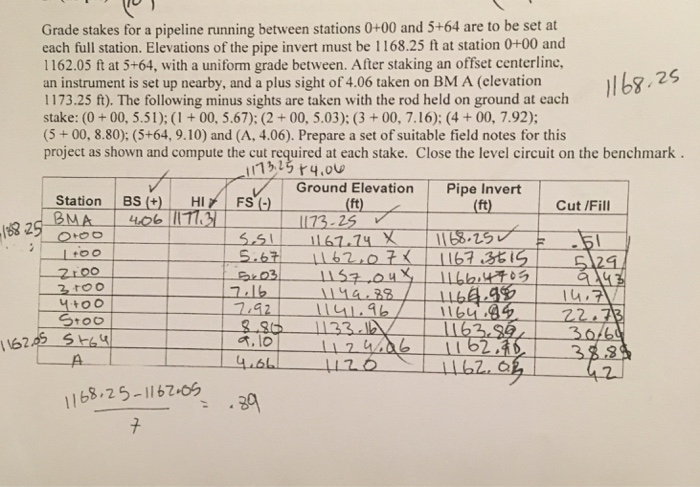 Grade stakes for a pipeline running between stations 0+00 and 5+64 are to be set at
each full station. Elevations of the pipe invert must be 1168.25 ft at station 0+00 and
1162.05 ft at 5+64, with a uniform grade between. After staking an offset centerline,
an instrument is set up nearby, and a plus sight of 4.06 taken on BM A (elevation
1168.25
1173.25 ft). The following minus sights are taken with the rod held on ground at each
stake: (0 + 00, 5.51); (1 + 00, 5.67); (2 + 00, 5.03); (3 + 00, 7.16); (4 + 00, 7.92);
(5 + 00, 8.80); (5+64, 9.10) and (A, 4.06). Prepare a set of suitable field notes for this
project as shown and compute the cut required at each stake. Close the level circuit on the benchmark .
1173.25 + 4.06
Station BS (+) HI FS (-) Ground Elevation (ft) Pipe Invert (ft) Cut /Fill
BMA 4.06 1177.31 1173.25 ✓
1168.25 0+00 5.51 1167.74 X 1168.25 ✓ = .51
1+00 5.67 1162.07 X 1167.3615 5.29
2+00 5.03 1157.04 X 1166.4705 9.43
3+00 7.16 1149.88 14.7
4+00 7.92 1141.96 1164.95 22.73
5+00 8.80 1133.16 1163.89 30.69
1162.05 5+64 9.10 1124.06 38.89
A 4.06 1120 42
1168.25-1162.05
= .89
7